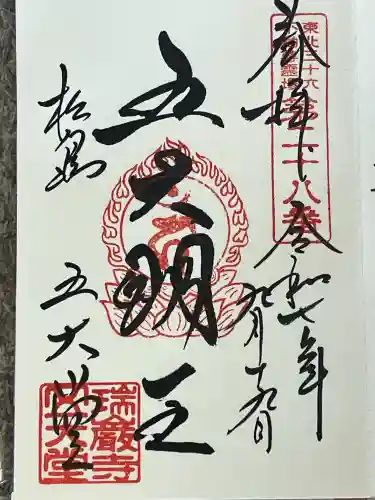 奉拝
令和七年
九月十九日
東北三十六
不動尊霊場
第二十八番
五大明王
松島
五大堂
瑞巌寺
五大堂